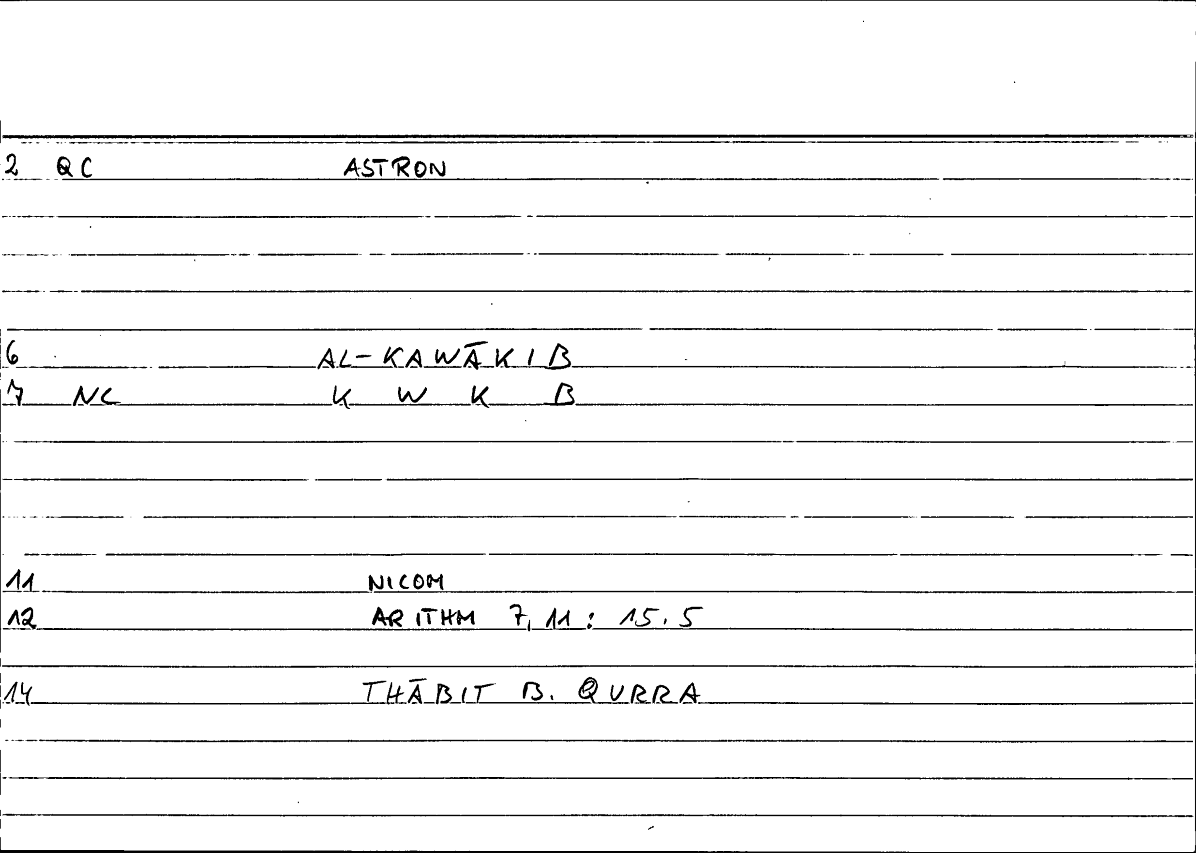 2 QC ASTRON
6 AL-KAWĀKIB
7 NC K W K B
11 NICOM
12 ARITHM 7, 11 : 15.5
14 THĀBIT B. QURRA